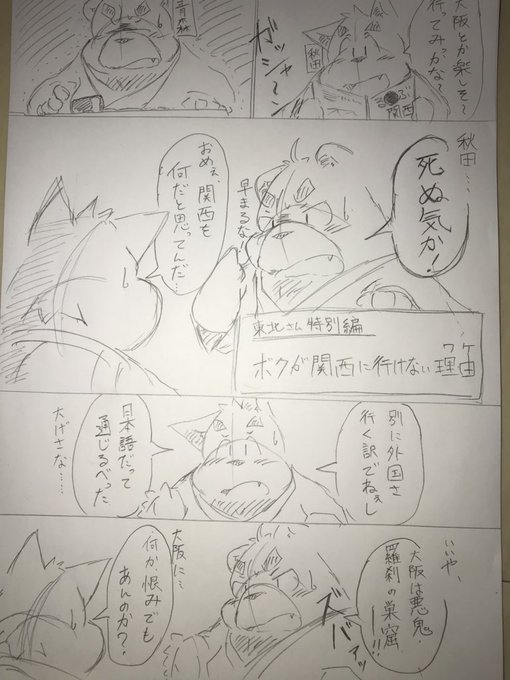 大阪とか楽しそ～
行ってみっかな？
秋田
る●ぶ
関西
ガッシャーン
青森
秋田……
死ぬ気か！
早まるな
おめぇ、関西を
何だと思ってんだ…
東北さん特別編
ボクが関西に行けない理由
ワケ
別に外国さ
行く訳でねぇし
日本語だって
通じるべった
大げさな……
いいや、
大阪は悪鬼
羅刹の巣窟!!
ズバァッ
大阪に…
何か恨みでも
あんのか？